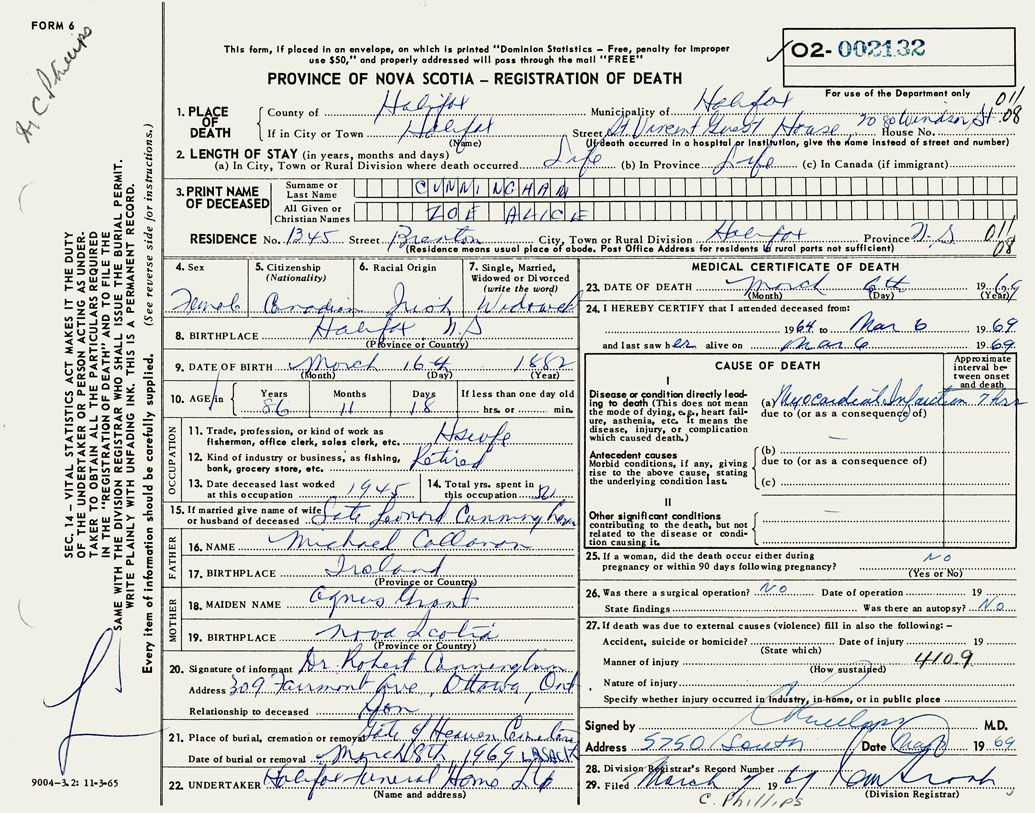 FORM 6
H C Phillips
This form, if placed in an envelope, on which is printed "Dominion Statistics – Free, penalty for improper
use $50," and properly addressed will pass through the mail "FREE"
PROVINCE OF NOVA SCOTIA – REGISTRATION OF DEATH
02- 002132
For use of the Department only
1. PLACE OF DEATH
County of Halifax Municipality of Halifax 011
If in City or Town Halifax Street St. Vincent Guest House, Windsor St. House No. 08
(Name) (If death occurred in a hospital or institution, give the name instead of street and number)
2. LENGTH OF STAY (in years, months and days)
(a) In City, Town or Rural Division where death occurred Life (b) In Province Life (c) In Canada (if immigrant)
3. PRINT NAME OF DECEASED
Surname or Last Name CUNNINGHAM
All Given or Christian Names ZOE ALICE
RESIDENCE No. 1345 Street Brenton City, Town or Rural Division Halifax Province N.S 011
(Residence means usual place of abode. Post Office Address for residents in rural parts not sufficient) 08
4. Sex Female
5. Citizenship (Nationality) Canadian
6. Racial Origin Irish
7. Single, Married, Widowed or Divorced (write the word) Widowed
8. BIRTHPLACE Halifax N.S
(Province or Country)
9. DATE OF BIRTH March 16th 1882
(Month) (Day) (Year)
10. AGE in Years 86 Months 11 Days 18 If less than one day old hrs. or min.
OCCUPATION
11. Trade, profession, or kind of work as fisherman, office clerk, sales clerk, etc. Hswfe
12. Kind of industry or business, as fishing, bank, grocery store, etc. Retired
13. Date deceased last worked at this occupation 1945
14. Total yrs. spent in this occupation
15. If married give name of wife or husband of deceased Late Leonard Cunningham
FATHER
16. NAME Michael Callanan
17. BIRTHPLACE Ireland
(Province or Country)
MOTHER
18. MAIDEN NAME Agnes Grant
19. BIRTHPLACE Nova Scotia
(Province or Country)
20. Signature of informant Dr. Robert Cunningham
Address 309 Fairmont Ave, Ottawa, Ont
Relationship to deceased Son
21. Place of burial, cremation or removal Gate of Heaven Cemetery
Date of burial or removal March 8th, 1969 LASALIZ
22. UNDERTAKER Halifax Funeral Home Ltd
(Name and address)
MEDICAL CERTIFICATE OF DEATH
23. DATE OF DEATH March 6th 1969
(Month) (Day) (Year)
24. I HEREBY CERTIFY that I attended deceased from:
1964 to Mar 6 1969
and last saw her alive on Mar 6 1969
CAUSE OF DEATH
Approximate interval between onset and death
I
Disease or condition directly leading to death (This does not mean the mode of dying, e.g., heart failure, asthenia, etc. It means the disease, injury, or complication which caused death.)
(a) Myocardial Infarction 7 hrs
due to (or as a consequence of)
Antecedent causes
Morbid conditions, if any, giving rise to the above cause, stating the underlying condition last.
(b)
due to (or as a consequence of)
(c)
II
Other significant conditions contributing to the death, but not related to the disease or condition causing it.
25. If a woman, did the death occur either during pregnancy or within 90 days following pregnancy? NO
(Yes or No)
26. Was there a surgical operation? NO Date of operation 19
State findings Was there an autopsy? No
27. If death was due to external causes (violence) fill in also the following: –
Accident, suicide or homicide? Date of injury 19
(State which)
Manner of injury 410.9
(How sustained)
Nature of injury
Specify whether injury occurred in industry, in home, or in public place
Signed by C Phillips M.D.
Address 5750 South Date 1969
28. Division Registrar's Record Number
29. Filed March 7 1969
(Division Registrar)
C. Phillips
SEC. 14 – VITAL STATISTICS ACT MAKES IT THE DUTY
OF THE UNDERTAKER OR PERSON ACTING AS UNDER-
TAKER TO OBTAIN ALL THE PARTICULARS REQUIRED
IN THE "REGISTRATION OF DEATH" AND TO FILE THE
SAME WITH THE DIVISION REGISTRAR WHO SHALL ISSUE THE BURIAL PERMIT.
WRITE PLAINLY WITH UNFADING INK. THIS IS A PERMANENT RECORD.
Every item of information should be carefully supplied. (See reverse side for instructions.)
9004–3.2: 11-3-65